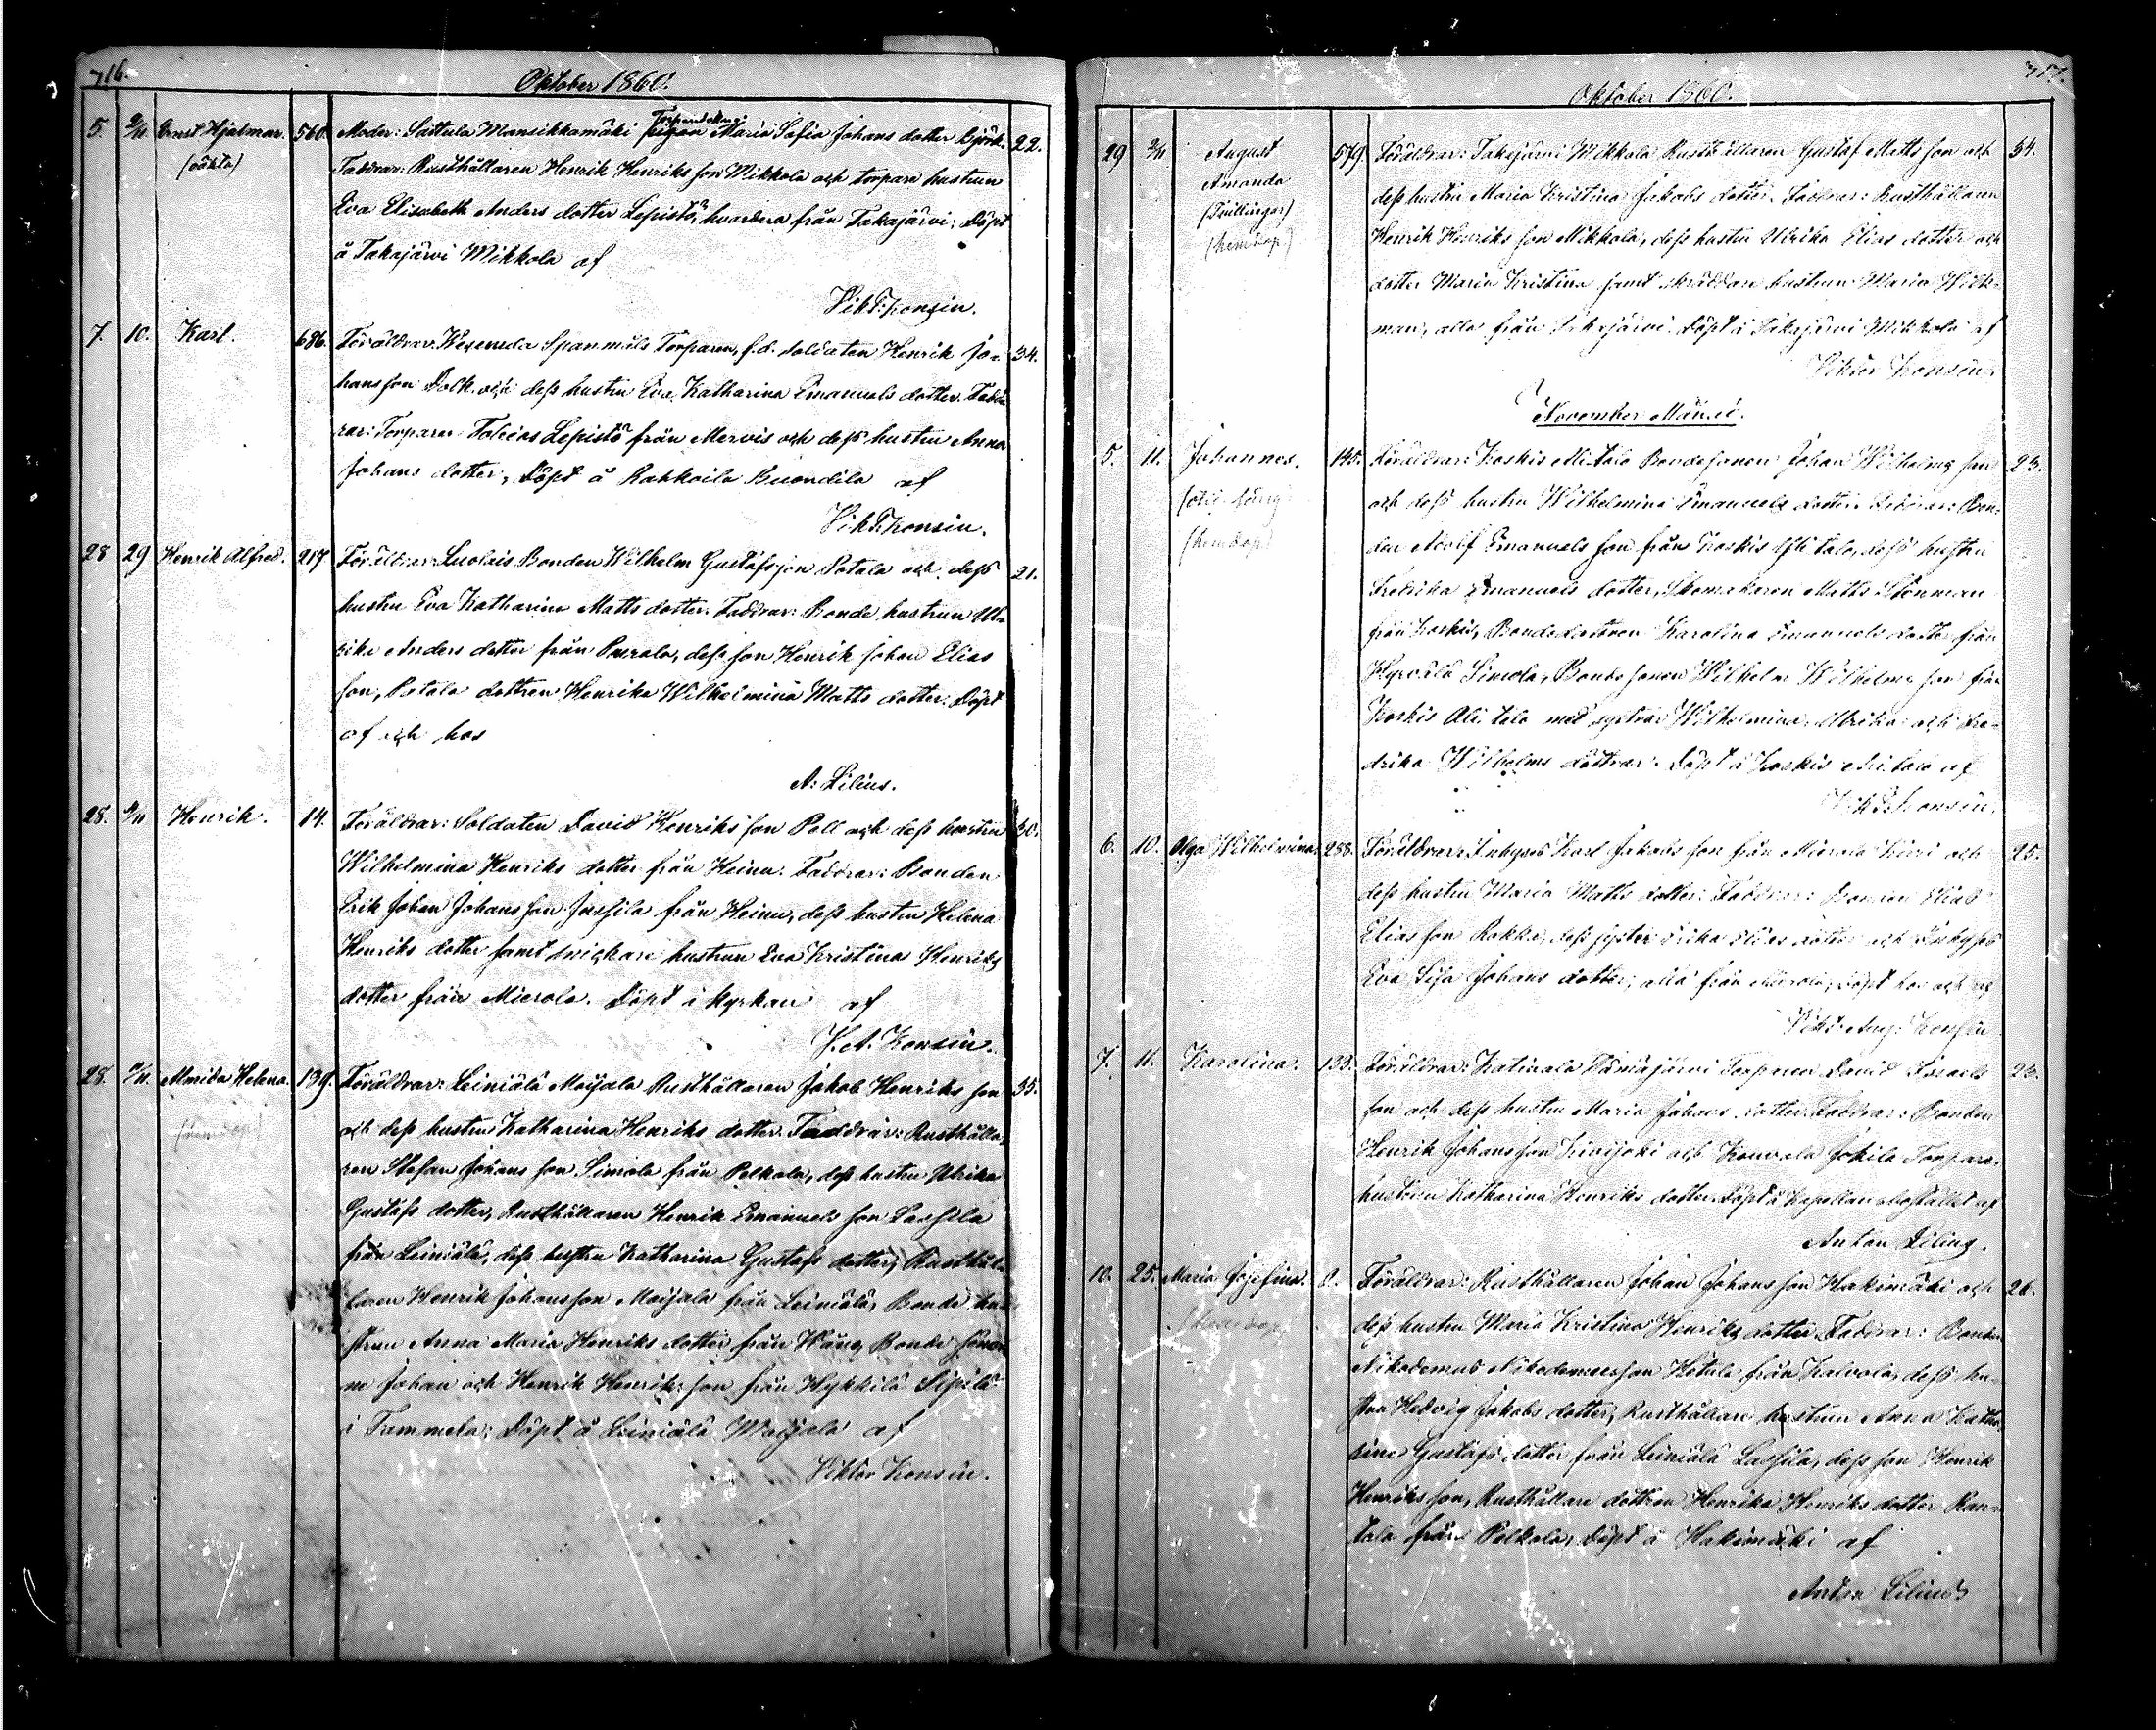 716.
Oktober 1860.
5. 2/11 Ernst Hjalmar. 560. Moder: Sattula Mansikkamäki pigan Torparedottren Maria Sofia Johans dotter Björk. 22.
(oäkta) Faddrar: Rusthållaren Henrik Henriks son Mikkola och torpare hustrun
Eva Elisabeth Anders dotter Lepistö, hvardera från Takajärvi; Döpt
å Takajärvi Mikkola af
Vikt: Konsin.
7. 10. Karl. 686. Föräldrar: Spanmåls Torparen, f.d. soldaten Henrik Jo- 34.
hans son Dolk och dess hustru Eva Katharina Emanuels dotter. Fadd-
rar: Torparen Tobias Lepistö från Mervis och dess hustru Anna
Johans dotter; Döpt å Rahkoila af
Vikt: Konsin.
28 29 Henrik Alfred. 217 Föräldrar: Luolais Bonden Wilhelm Gustafs son Potala och dess 21.
hustru Eva Katharina Matts dotter. Faddrar: Bonde hustrun Ul-
rika Anders dotter från Parala, dess son Henrik Johan Elias
son, Potala dottren Henrika Wilhelmina Matts dotter. Döpt
af och hos
A: Lilius.
28. 4/11 Henrik. 14. Föräldrar: Soldaten David Henriks son Pell och dess hustru 30.
Wilhelmina Henriks dotter från Heinu. Faddrar: Bonden
Erik Johan Johans son Jussila från Heinu, dess hustru Helena
Henriks dotter samt snickare hustrun Eva Kristina Henriks
dotter från Mierola. Döpt i kyrkan af
V. A. Konsin.
28. /11. Helena. 139. Föräldrar: Leiniälä Maijala Rusthållaren Jakob Henriks son 35.
(hemdop) och dess hustru Katharina Henriks dotter. Faddrar: Rusthålla-
ren Stefan Johans son Simola från Pelkola, dess hustru Ulrika
Gustafs dotter, Rusthållaren Henrik Emanuels son Lassila
från Leiniälä, dess hustru Katharina Gustafs dotter, Rusthål-
laren Henrik Johansson Maijala från Leiniälä, Bonde hu-
strun Anna Maria Henriks dotter från Wäng, Bonde söner-
ne Johan och Henrik Henriks son från Hykkilä Sipilä
i Tammela; Döpt å Leiniälä Maijala af
Viktor Konsin.
717.
Oktober 1860.
29 2/11 August 579. Föräldrar: Takajärvi Mikkola Rusthållaren Gustaf Matts son och 34.
Amanda dess hustru Maria Kristina Jakobs dotter. Faddrar: Rusthållaren
(Tvillingar) Henrik Henriks son Mikkola, dess hustru Ulrika Elias dotter och
(hemdop) dotter Maria Kristina samt skräddare hustrun Maria Wick-
man, alla från Takajärvi. Döpt å Takajärvi Mikkola af
Viktor Konsin.
November Månad.
5. 11. Johannes. 145. Föräldrar: Koskis Ali talo Bondesonen Johan Wilhelms son 23.
och dess hustru Wilhelmina Emanuels dotter. Faddrar: Bon-
(hemdop) den Adolf Emanuels son från Koskis Yli talo, dess hustru
Fredrika Emanuels dotter, Skomakaren Matts Stenman
från Koskis, Bondedottren Karolina Emanuels dotter från
Hyrvälä Simola, Bonde sonen Wilhelm Wilhelms son från
Koskis Ali talo med systrar Wilhelmina, Ulrika och Fre-
drika Wilhelms döttrar. Döpt å Koskis Ali talo af
Vikt: Konsin.
6. 10. Olga Wilhelmina. 288. Föräldrar: Inhyses Karl Jakobs son från Mierola och 25.
dess hustru Maria Matts dotter. Faddrar: Bonden Elias
Elias son Rokka, dess syster Elias dotter och Inhyses
Eva Lisa Johans dotter, alla från Mierola; döpt hos och af
Vikt: Aug: Konsin
7. 11. Karolina. 133. Föräldrar: Katinala Torparen David Israels 23.
son och dess hustru Maria Johans dotter. Faddrar: Bonden
Henrik Johans son Kivijoki och Jokila Torpare-
hustrun Katharina Henriks dotter. Döpt å Kapellansbostället af
Anton Lilius.
10. 25. Maria Josefina. 8. Föräldrar: Rusthållaren Johan Johans son Hakimäki och 26.
(hemdop) dess hustru Maria Kristina Henriks dotter. Faddrar: Bonden
Nikodemus Nikodemusson Hetula från Kalvola, dess hu-
stru Hedvig Jakobs dotter, Rusthållare hustrun Anna Katha-
rina Gustafs dotter från Leiniälä Lassila, dess son Henrik
Henriks son, Rusthållare dottren Henrika Henriks dotter Ran-
tala från Pelkola, Döpt å Hakimäki af
Anton Lilius